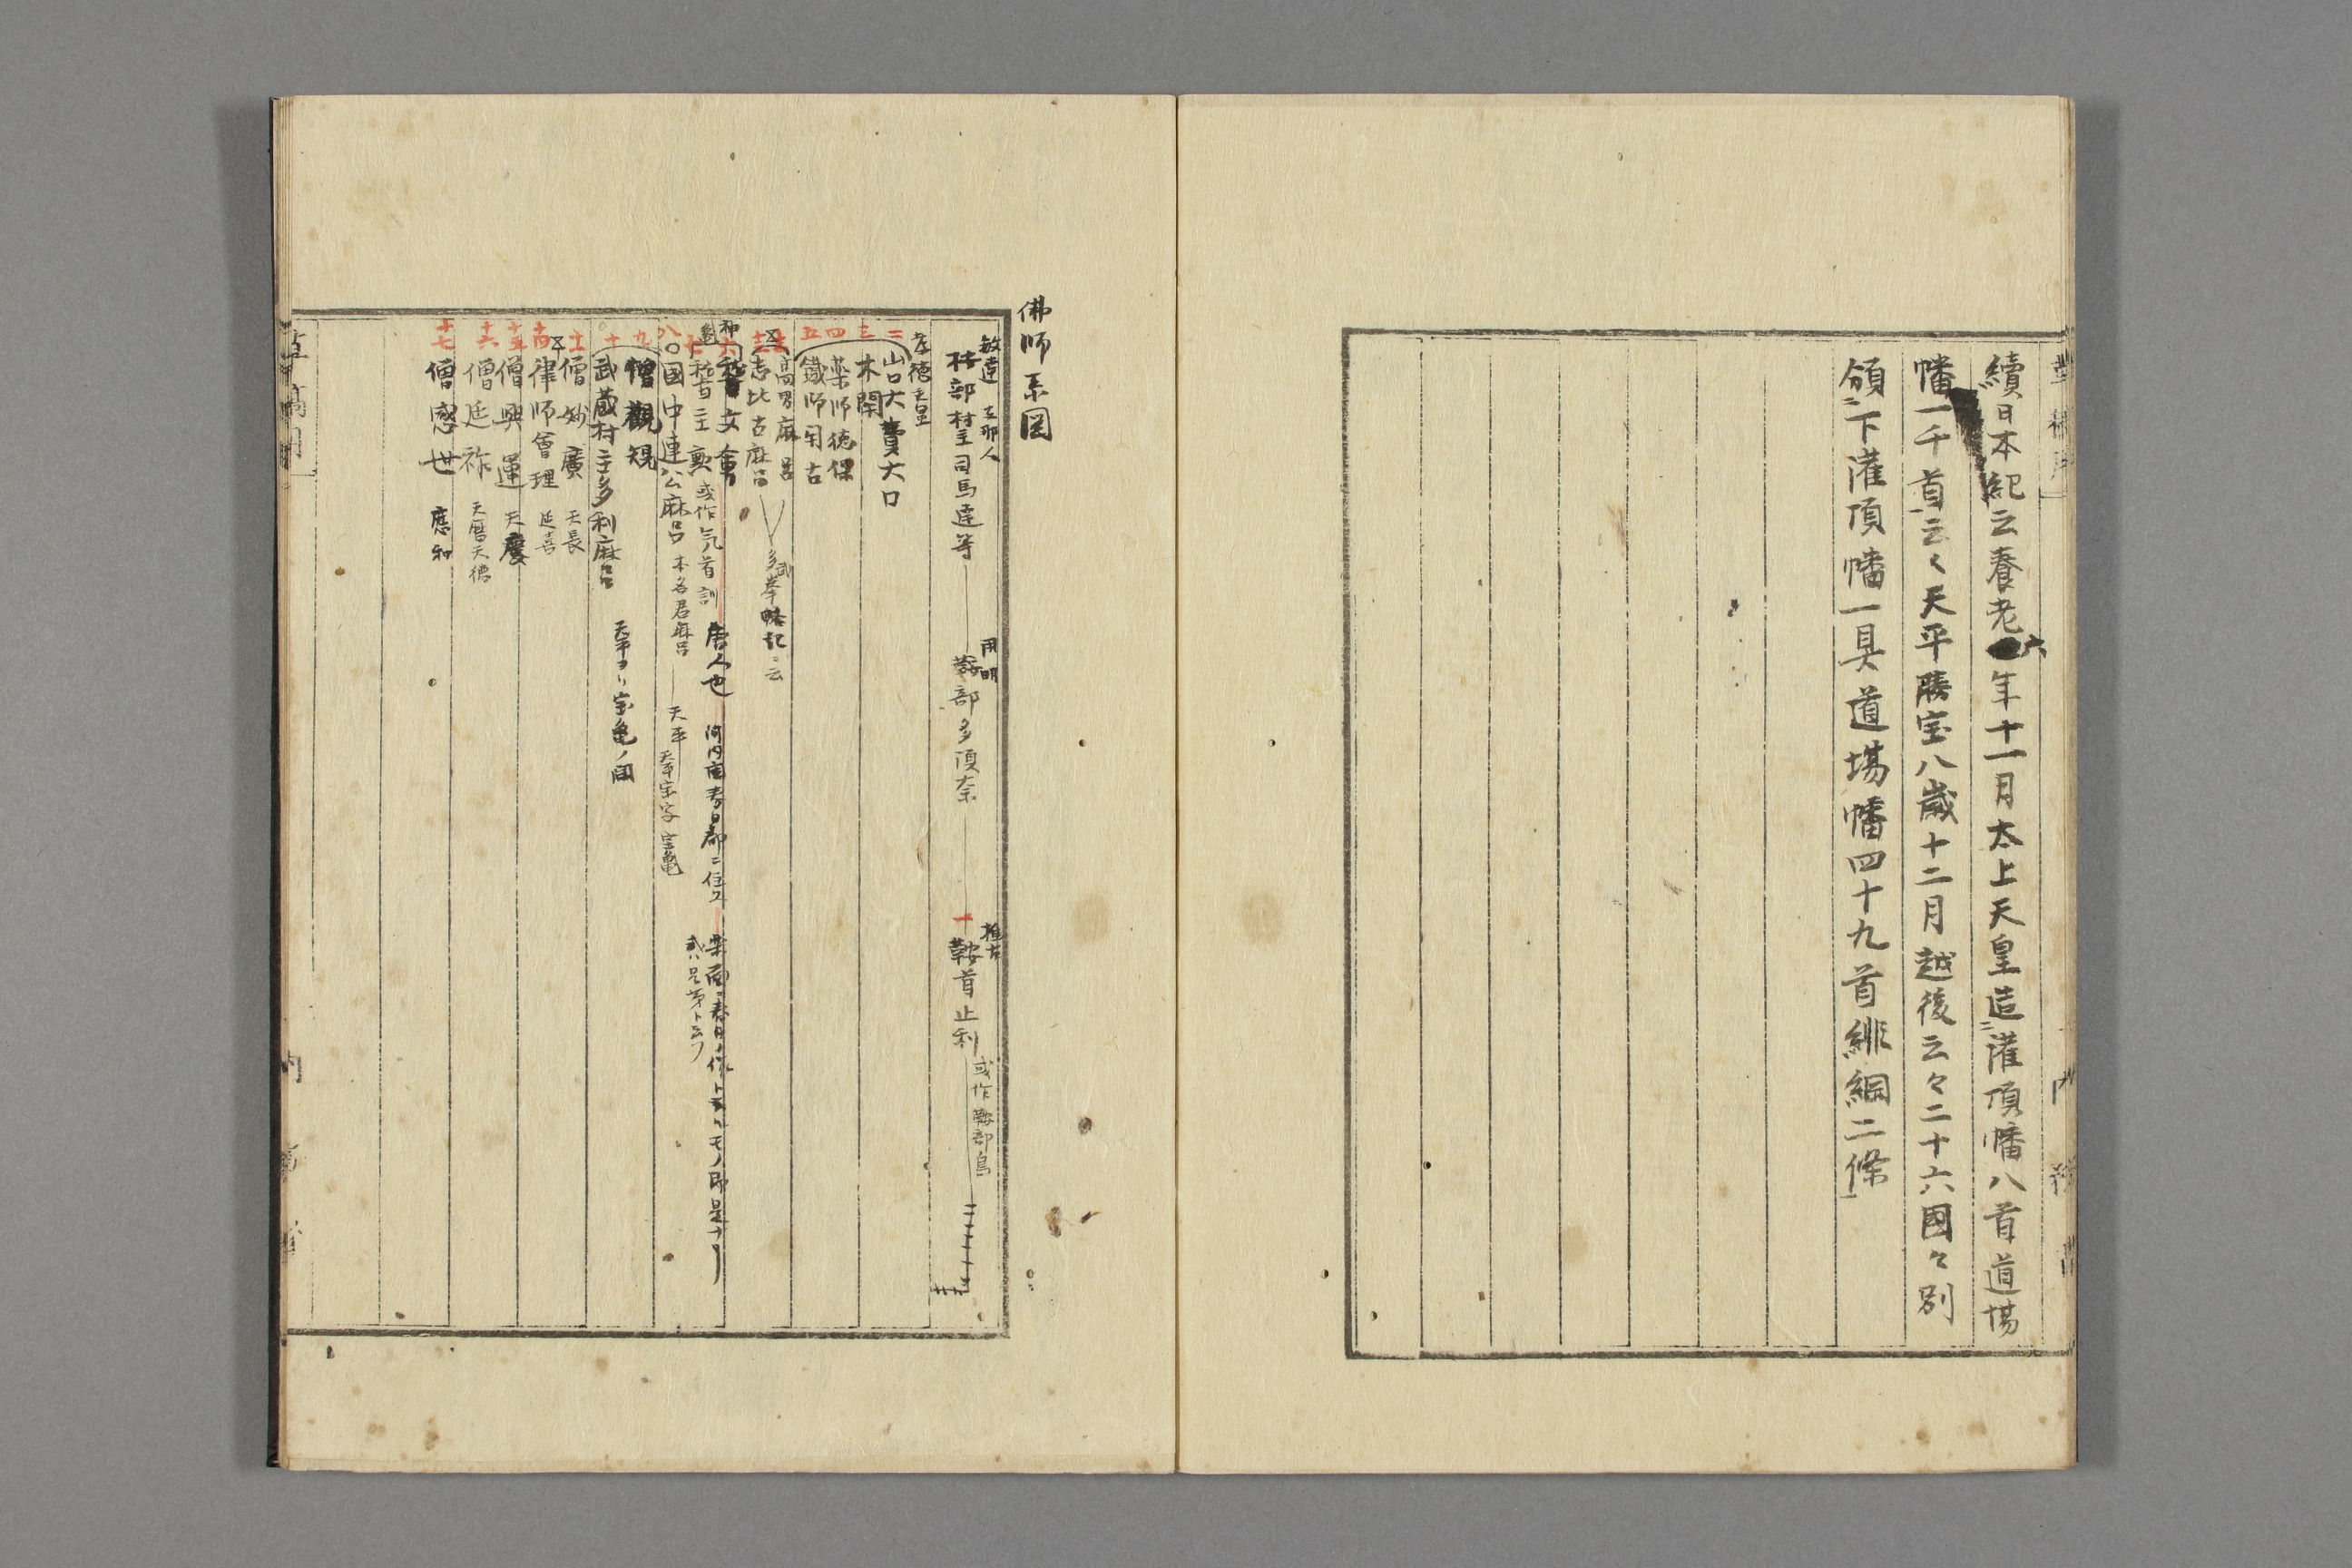 續日本紀云養老六年十一月太上天皇造ニ灌頂幡八首道場
幡一千首云〻天平勝宝八歳十二月越後云々二十六國々別
頒ニ下灌頂幡一具道場幡四十九首緋綱二條
佛師系図
敏達
桉部村主司馬達等
用明
鞍部多須奈
推古
鞍首止利
或作鞍部鳥
孝徳天皇
二 山口大費大口
三 木閇
四 薬師徳保
五 鐵師閇古
高男麻呂
志比古麻呂
多武峯略記ニ云
神
六 稽文會
稽主勲
唐人也
河内国春日郡ニ住ス
八 国中連公麻呂 本名君麻呂
天平 天平宝字 宝亀
九 僧觀規
十 武蔵村主多利麻呂
天平ヨリ宝亀ノ間
僧妙廣 天長
十四 律師會理 延喜
十五 僧興運 天慶
十六 僧延祚 天暦天徳
十七 僧感世 應和